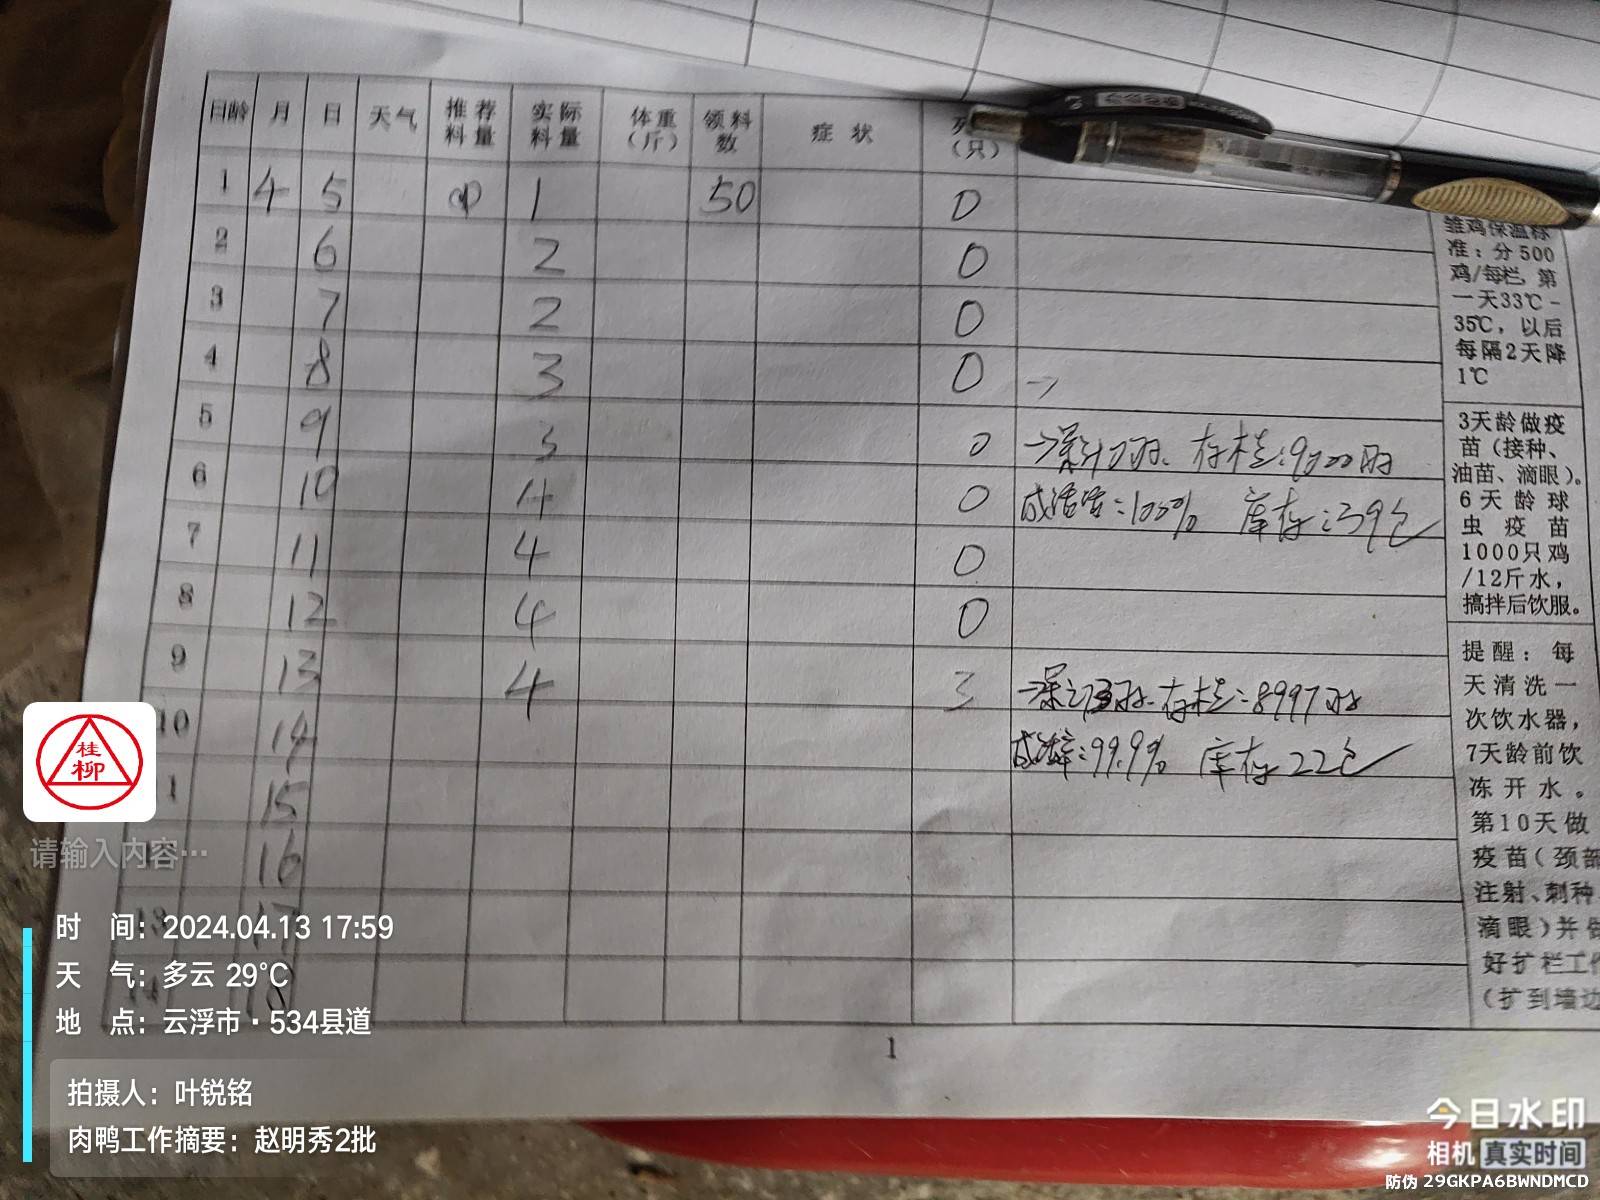 日龄 月 日 天气 推荐料量 实际料量 体重(斤) 领料数 症状 死(只)
1 4 5 中 1 50 0
2 6 2 0
3 7 2 0
4 8 3 0
5 9 3 0 存栏:9000羽
6 10 4 0 成活:100% 库存:39包
7 11 4 0
8 12 4 0
9 13 4 3 存栏:8997羽
10 14 成活率:99.9% 库存22包
15
16
17
18
雏鸡保温标
准:分500
鸡/每栏,第
一天33℃-
35℃,以后
每隔2天降
1℃
3天龄做疫
苗(接种、
油苗、滴眼)。
6天龄球
虫疫苗
1000只鸡
/12斤水,
搞拌后饮服。
提醒:每
天清洗一
次饮水器,
7天龄前饮
冻开水。
第10天做
疫苗(颈部
注射、刺种、
滴眼)并做
好扩栏工作
(扩到墙边
1
桂
柳
请输入内容…
时 间:2024.04.13 17:59
天 气:多云 29℃
地 点:云浮市·534县道
拍摄人:叶锐铭
肉鸭工作摘要:赵明秀2批
今日水印
相机 真实时间
防伪 29GKPA6BWNDMCD